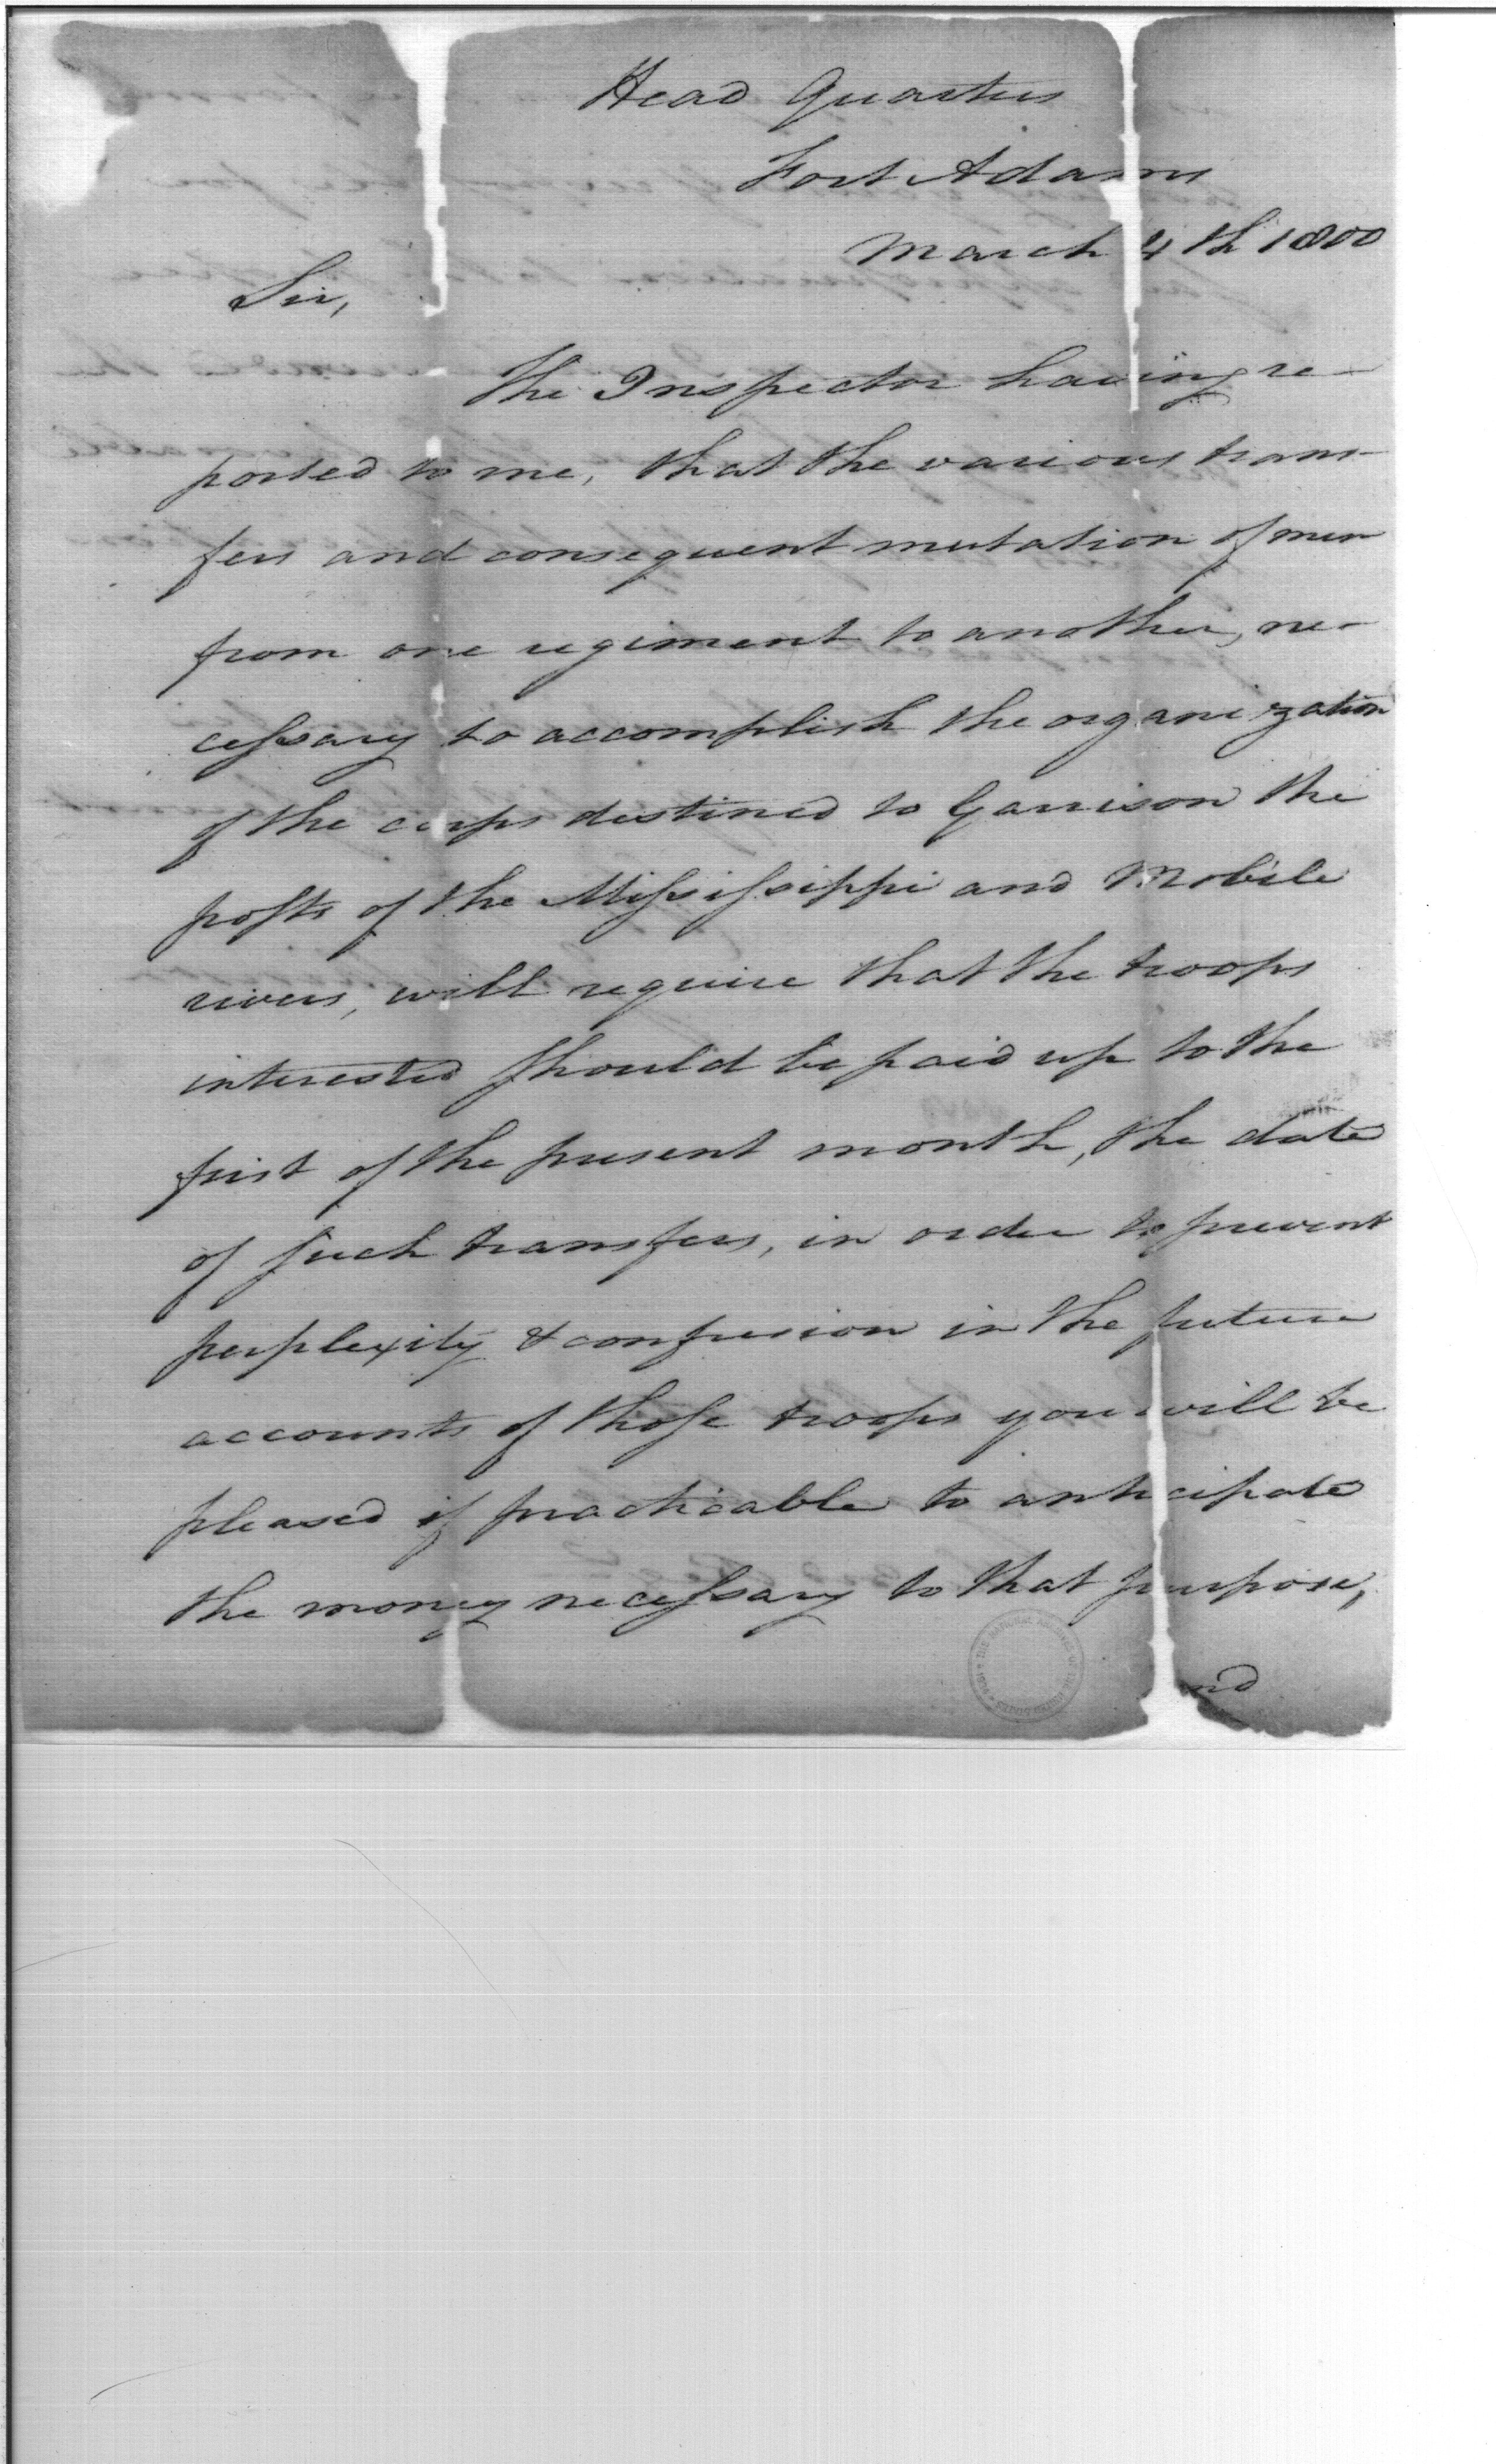 Head Quarters
Fort Adams
March 4th 1800
Sir,
The Inspector having re-
ported to me, that the various trans-
fers and consequent mutation of men
from one regiment to another, ne-
cessary to accomplish the organization
of the corps destined to Garrison the
posts of the Mississippi and Mobile
rivers, will require that the troops
interested should be paid up to the
first of the present month, the date
of such transfers, in order to prevent
perplexity & confusion in the future
accounts of those troops you will be
pleased if practicable to anticipate
the money necessary to that purpose,
nd